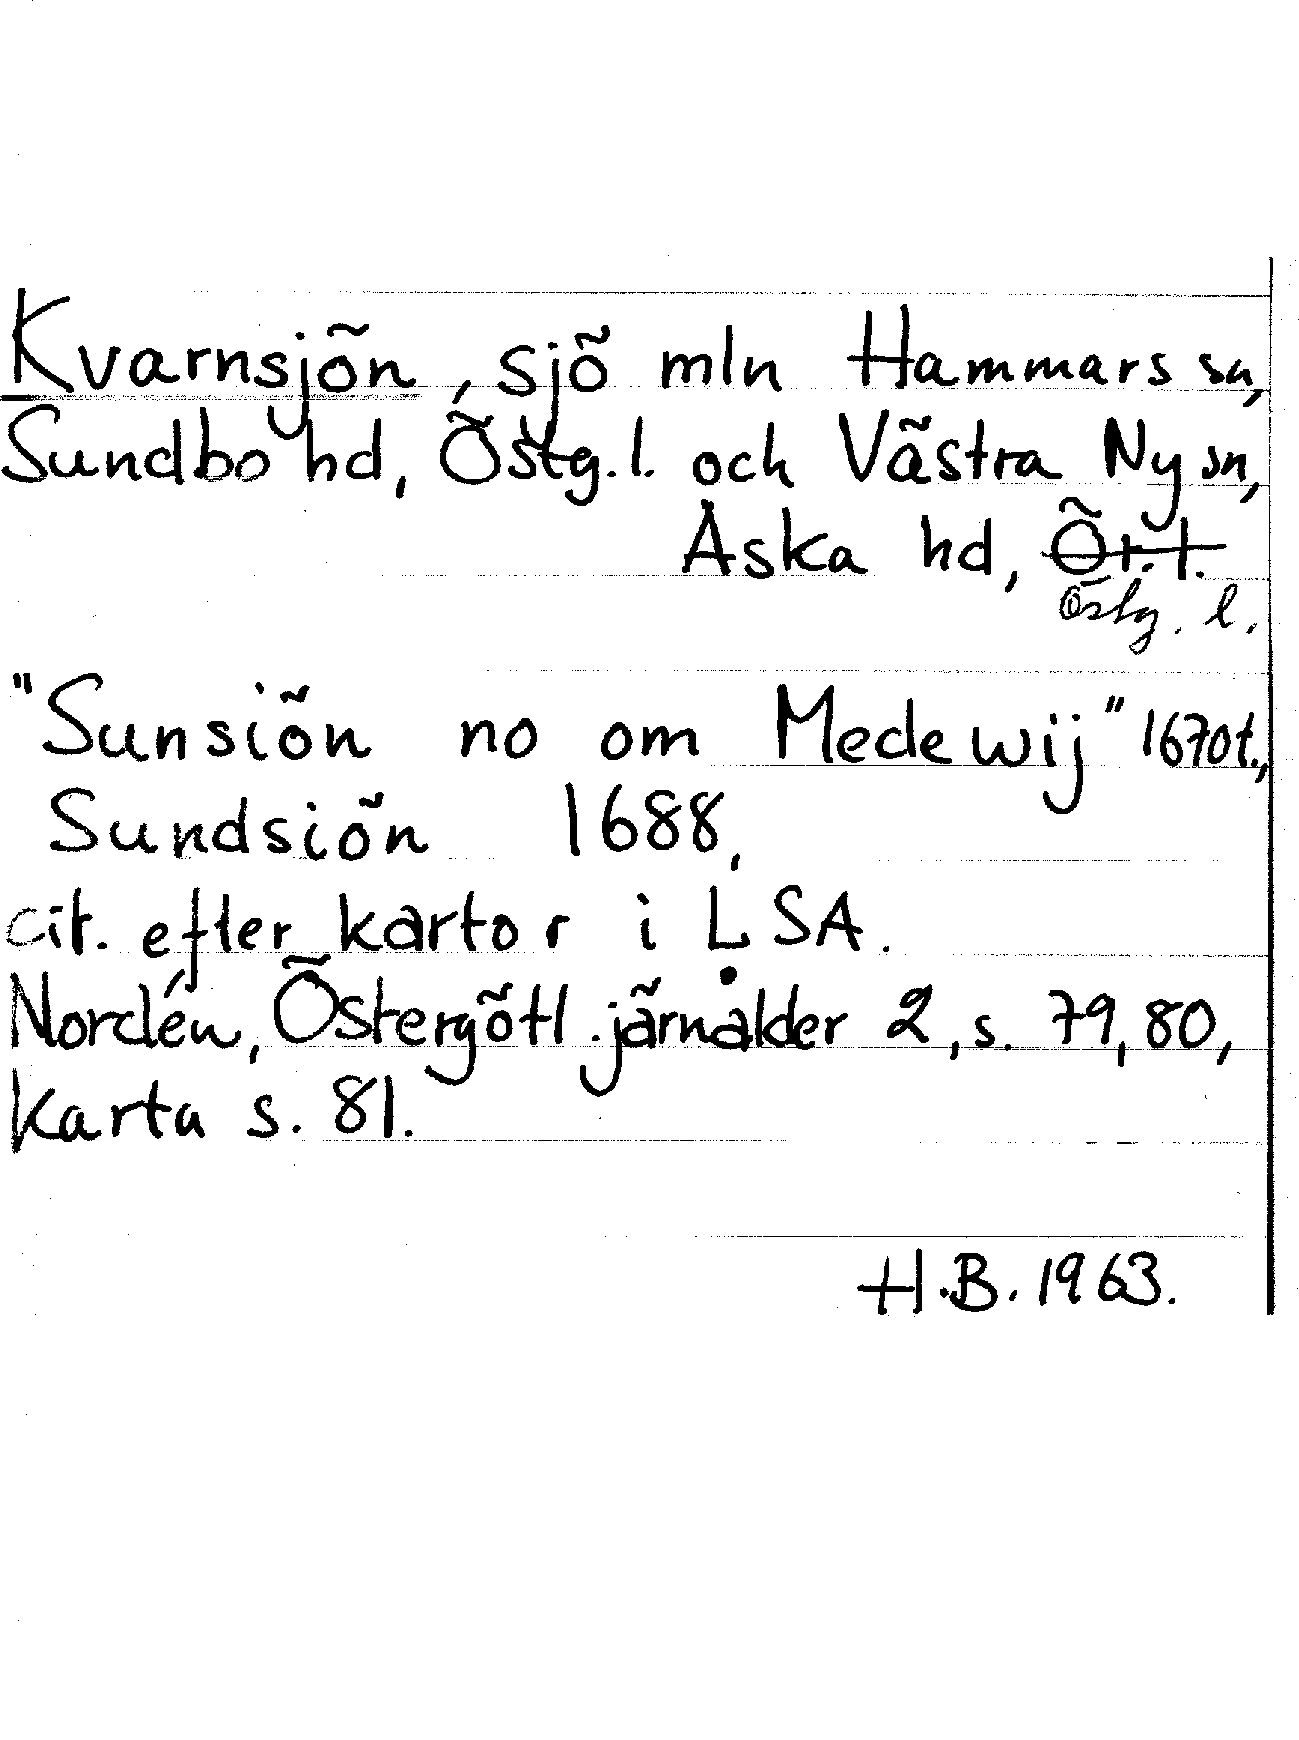 Kvarnsjön, sjö mln Hammars sn,
Sundbo hd, Östg. l. och Västra Ny sn,
Aska hd, Ör. l.
Östg. l.
"Sunsiön no om Medewij" 1670t.,
Sundsiön 1688,
cit. efter kartor i LSA.
Nordén, Östergötl. järnålder 2, s. 79, 80,
karta s. 81.
H.B. 1963.